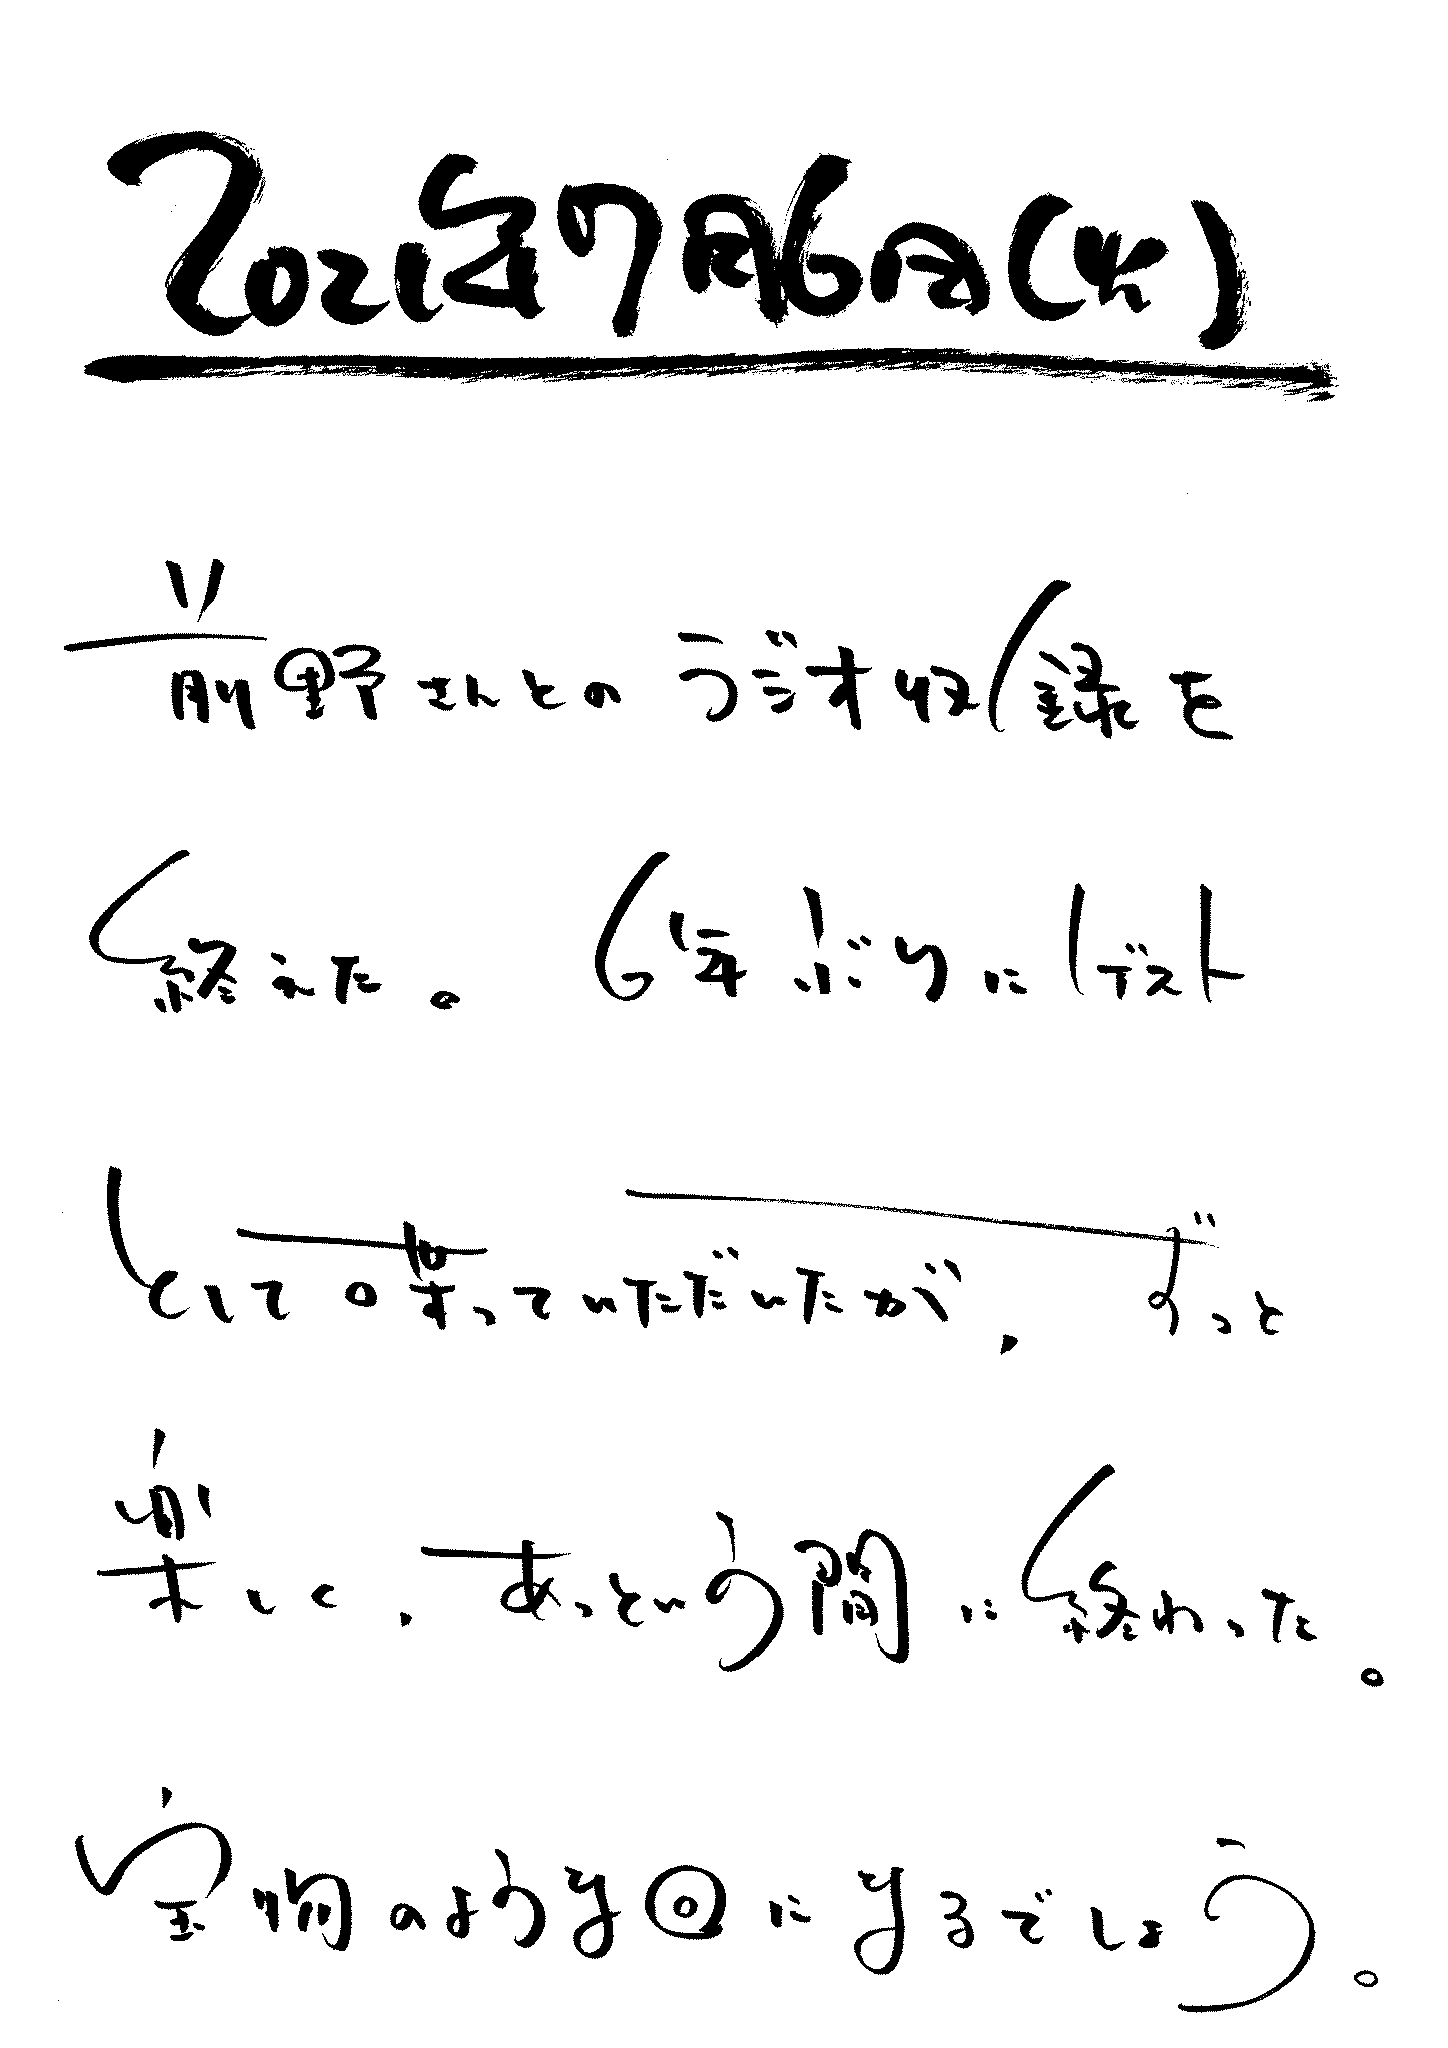 2021年7月6日(火)
前野さんとのラジオ収録を
終えた。6年ぶりにゲスト
として呼っていただいたが、ずっと
楽しく、あっという間に終わった。
宝物のような回になるでしょう。